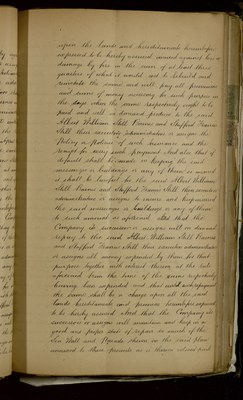 upon the lands and hereditaments hereinbefore
expressed to be hereby assured insured against loss or
damage by fire in the sum of at least three
quarters of what it would cost to rebuild and
reinstate the same and will pay all premiums
and sums of money necessary for such purpose on
the days when the same respectively ought to be
paid and will on demand produce to the said
Albert William Still Burns and Stafford Francis
Still their executors administrators or assigns the
Policy or Policies of such Insurance and the
receipt for every such payment And also that if
default shall be made in keeping the said
messuage or buildings or any of them so insured
it shall be lawful for the said Albert William
Still Burns and Stafford Francis Still their executors
administrators or assigns to insure and keep insured
the said messuage or buildings or any of them
to such amount as aforesaid And that the
Company its successors or assigns will on demand
repay to the said Albert William Still Burns
and Stafford Francis Still their executors administrators
or assigns all money expended by them for that
purpose together with interest thereon at the rate
aforesaid from the time of the same respectively
having been expended and that until such repayment
the same shall be a charge upon all the said
lands hereditaments and premises hereinbefore expressed
to be hereby assured And that the Company its
successors or assigns will maintain and keep in a
good and proper state of repair so much of the
Sea Wall and
annexed to these presents as is thereon coloured pink